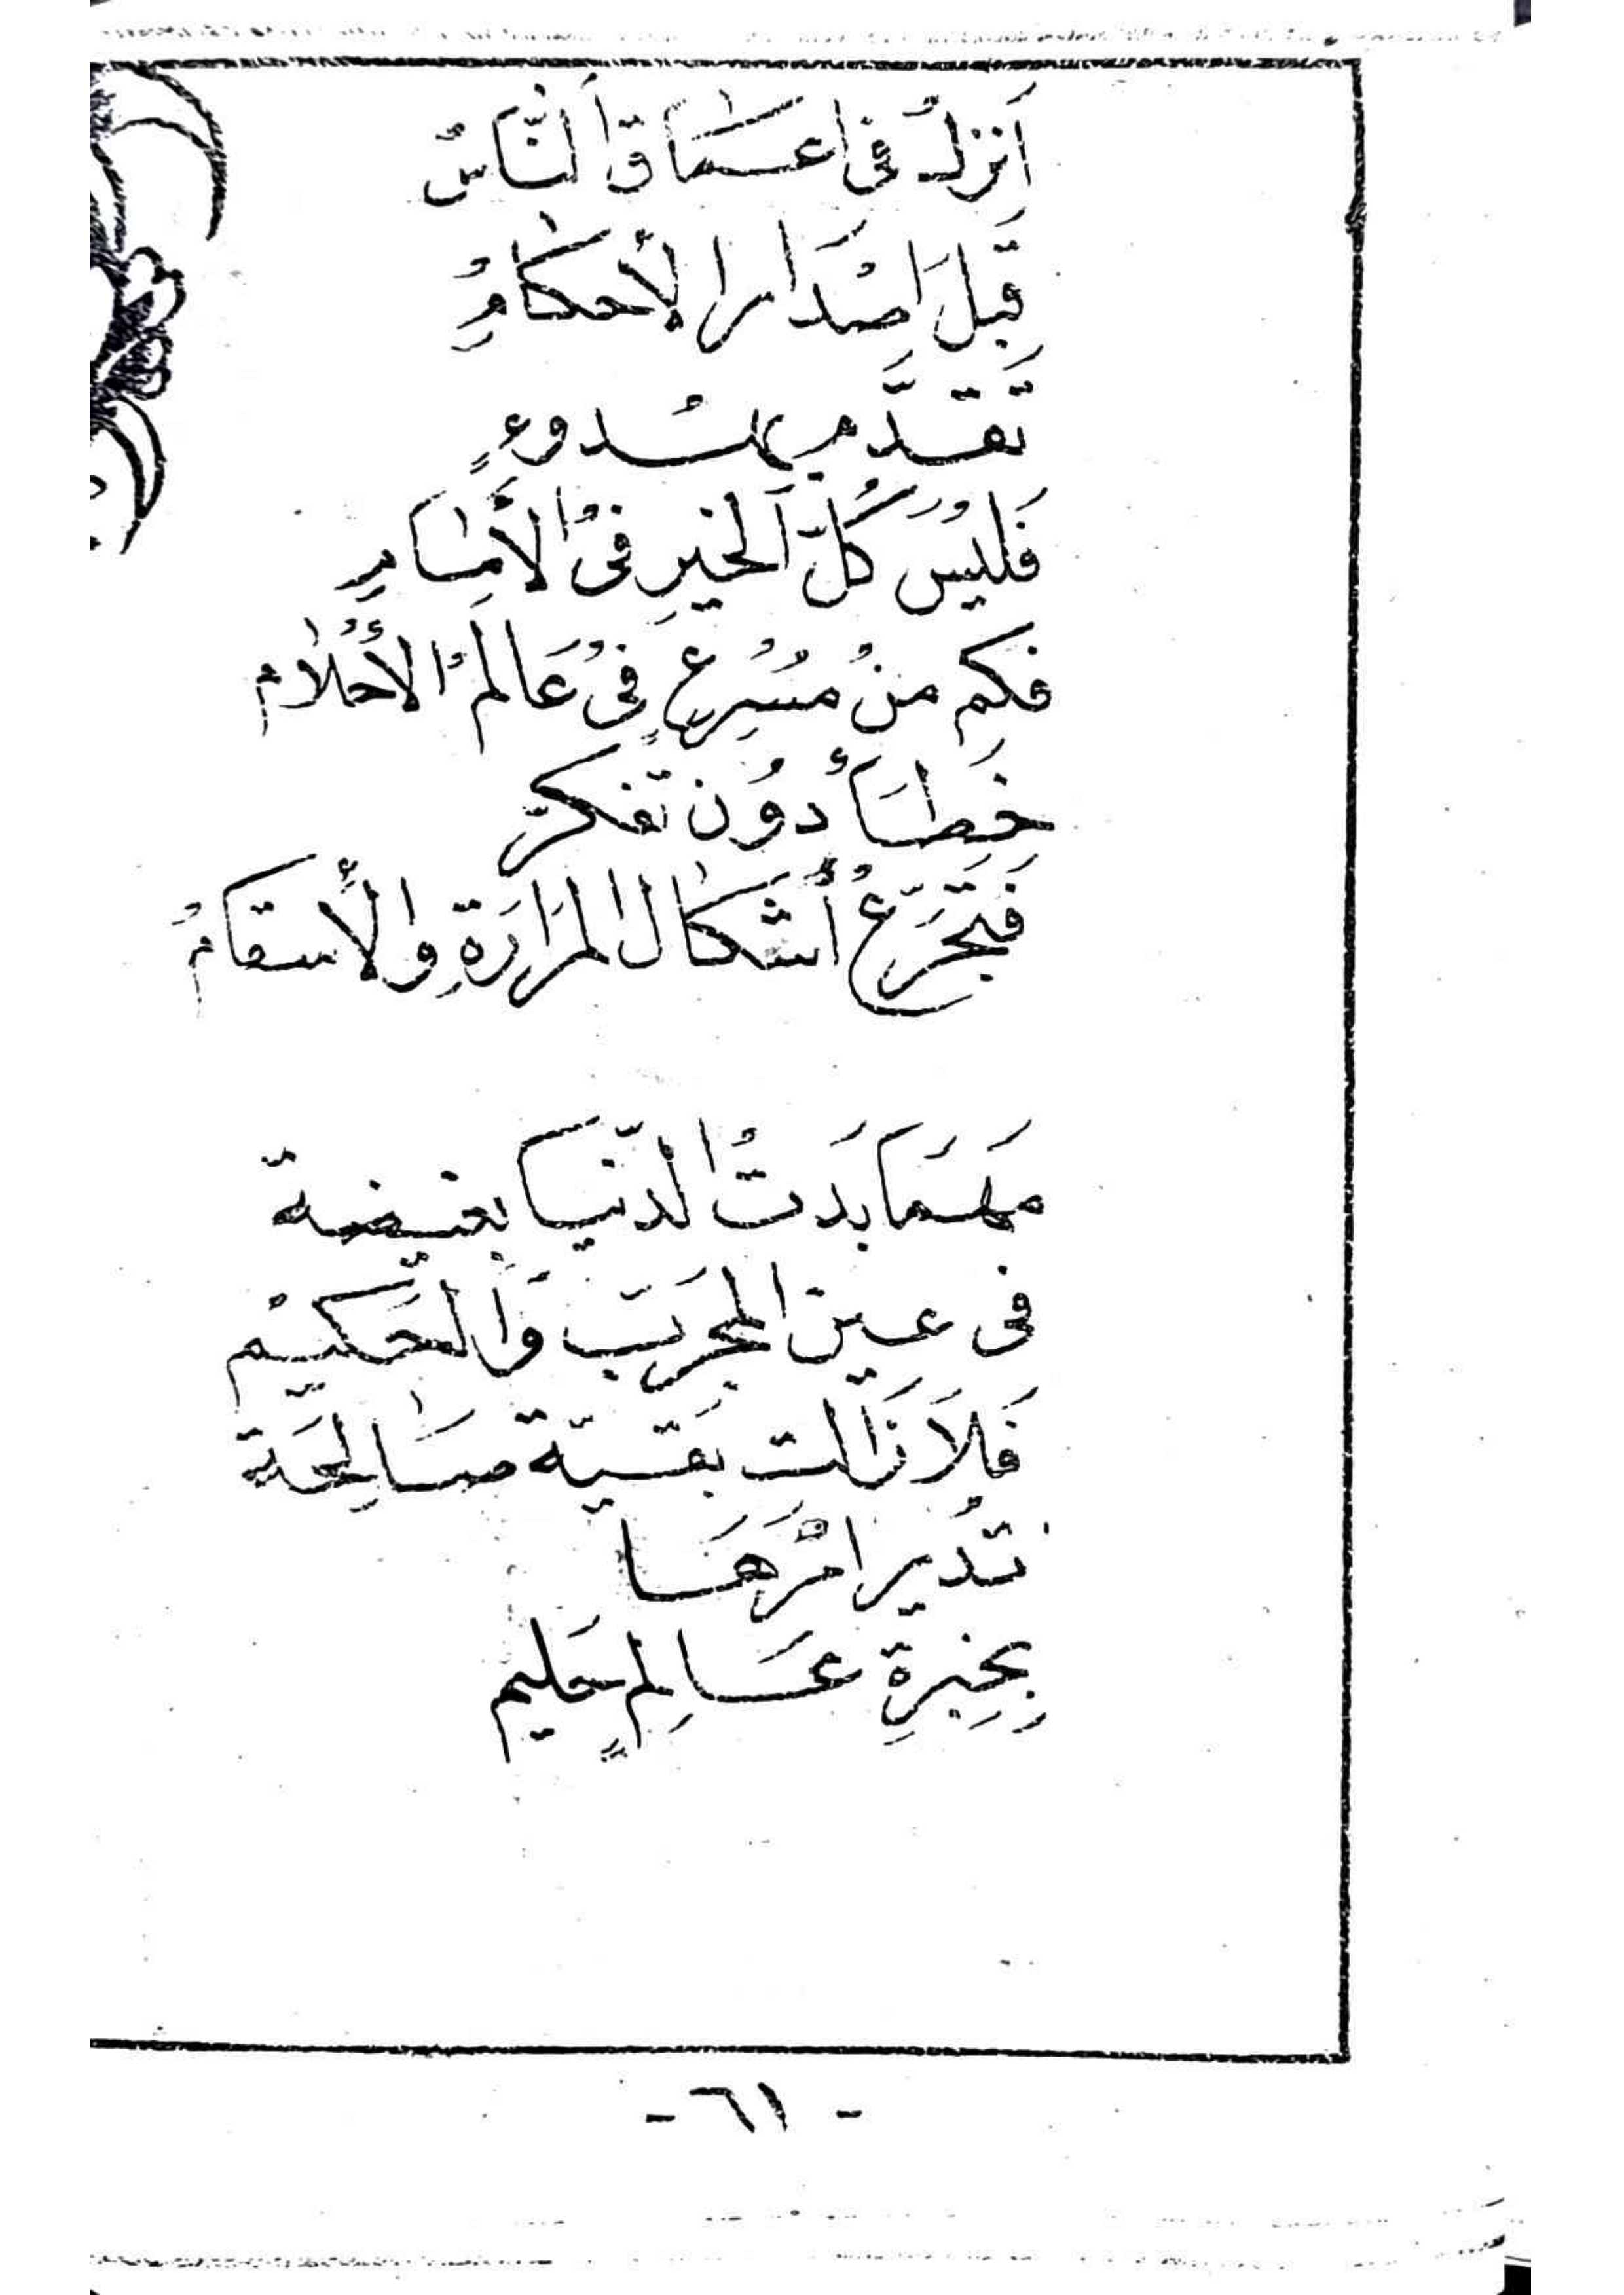 أنزل في أعماق الناس
قبل إصدار الأحكام
تقدّم بهدوءٍ
فليس كلّ الخير في الأمام
فكم من مسرعٍ في عالم الأحلام
خطأ دون تفكّر
فتجرّع أشكال المرارة والأسقام
مهما بدت الدنيا بغيضة
في عين المجرّب والحكيم
فلا زالت بقيّة صالحة
تدير امرها
بخبرة عالمٍ حليم
- ٦١ -